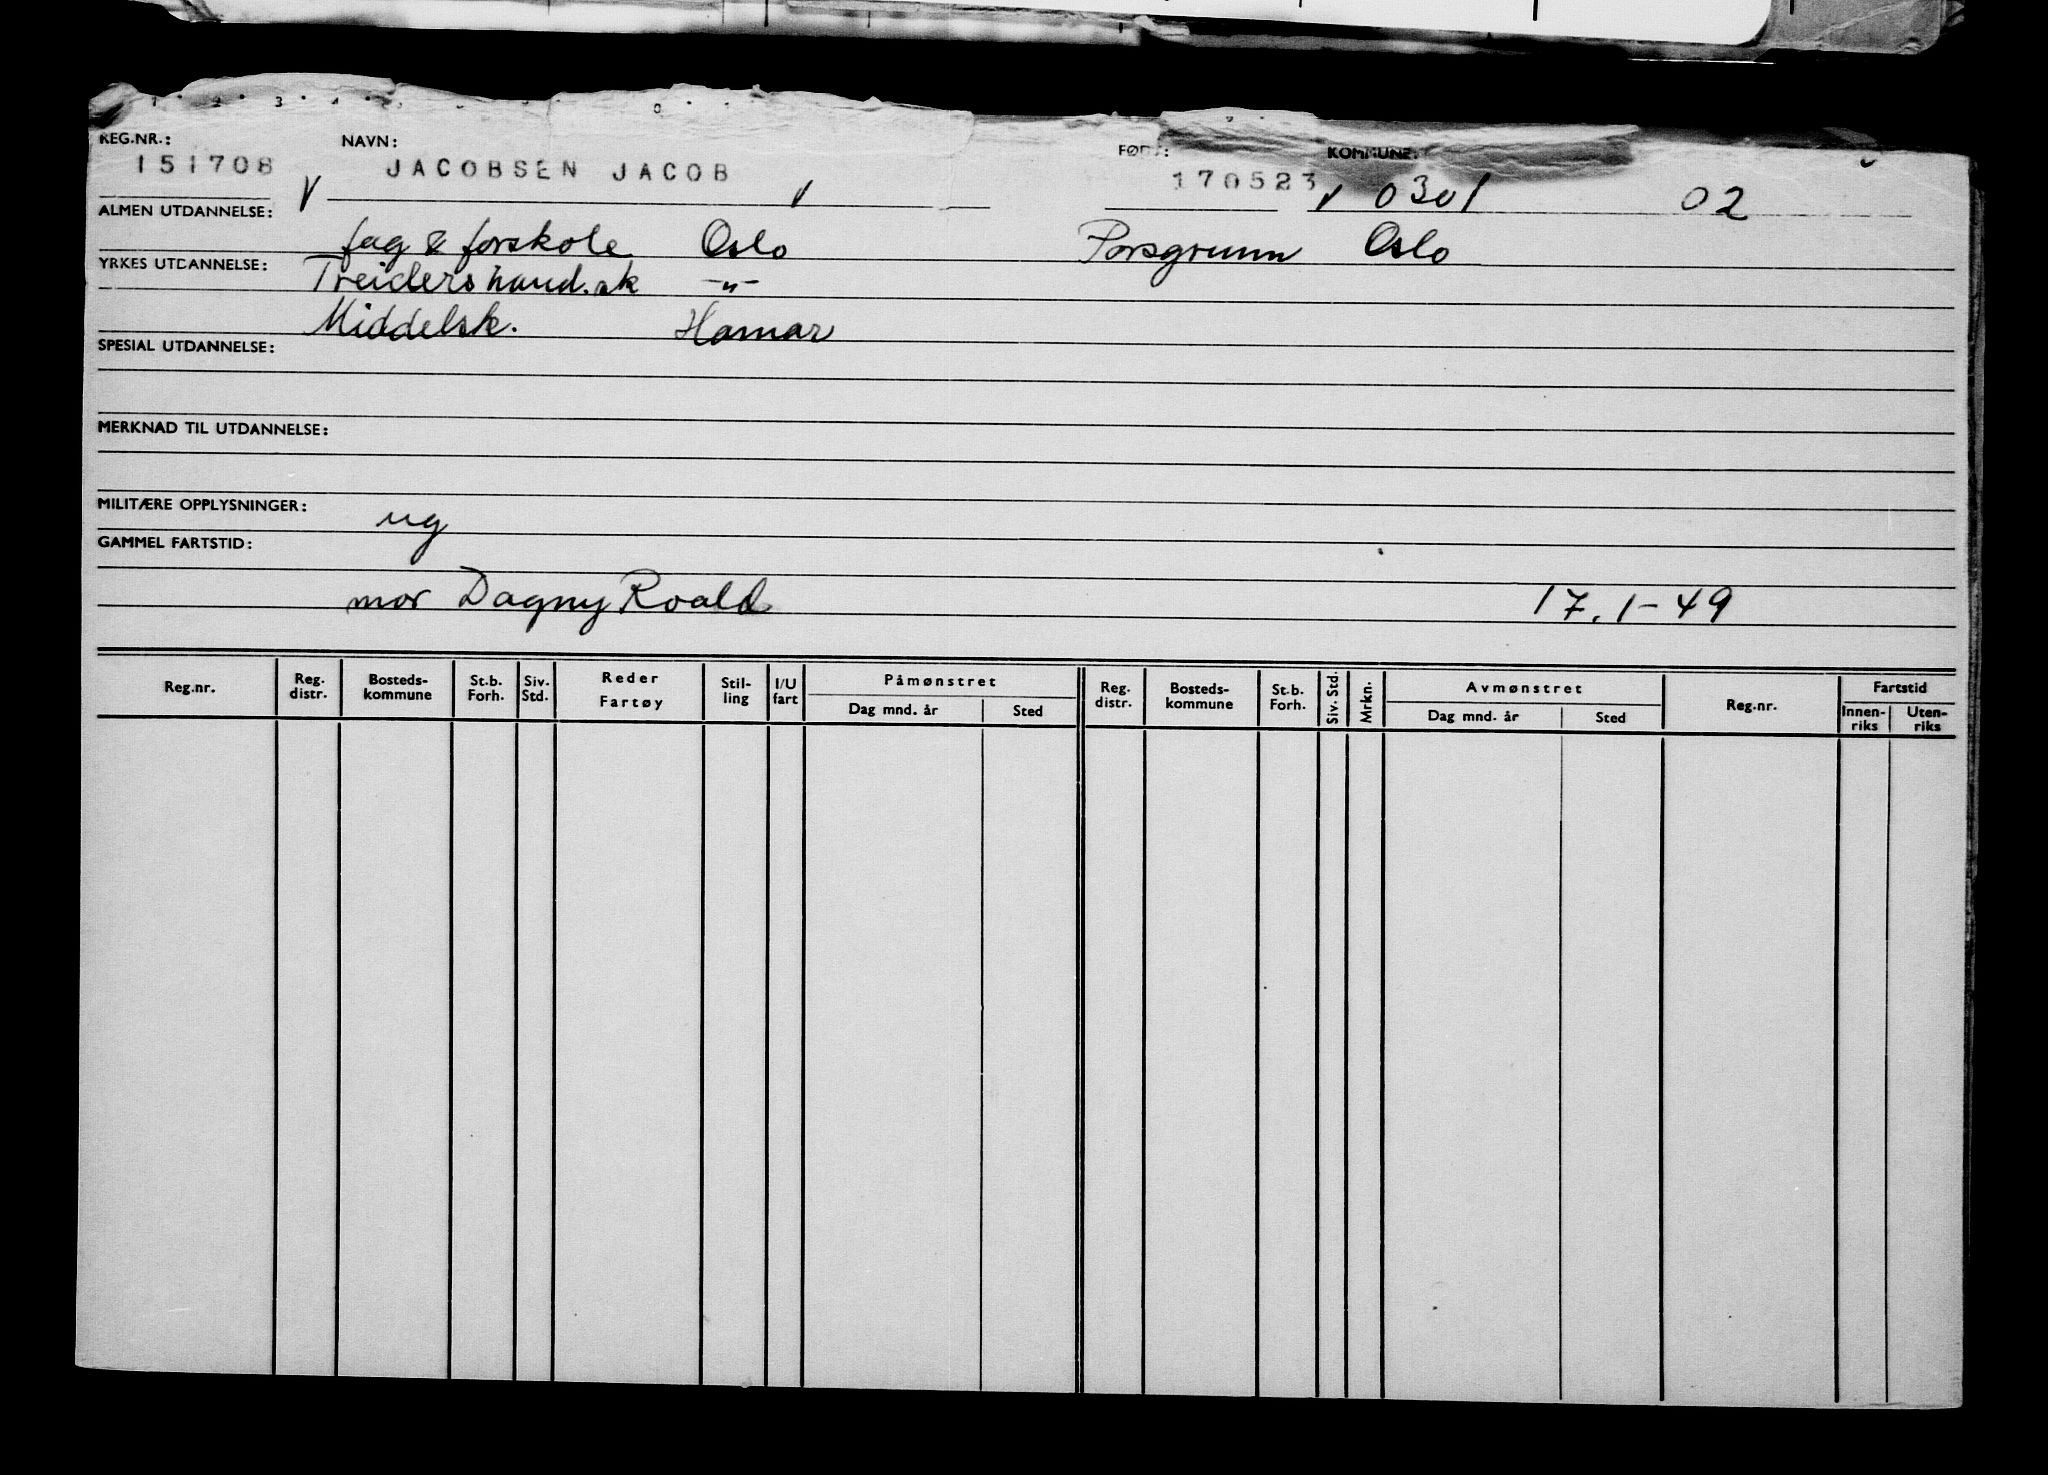 REG.NR.: NAVN: FØDT: KOMMUNE:
151708 JACOBSEN JACOB 170523 0301 02
ALMEN UTDANNELSE: fag & forskole Oslo Porsgrunn Oslo
YRKES UTDANNELSE: Treiders hand.sk -"-
Middelsk. Hamar
SPESIAL UTDANNELSE:
MERKNAD TIL UTDANNELSE:
MILITÆRE OPPLYSNINGER: ug
GAMMEL FARTSTID:
mor Dagny Roald 17.1-49
Reg.nr. Reg. distr. Bosteds-kommune St.b. Forh. Siv. Std. Reder Fartøy Stil-ling I/U fart Påmønstret Dag mnd. år Sted Reg. distr. Bosteds-kommune St.b. Forh. Siv. Std. Mrkn. Avmønstret Dag mnd. år Sted Reg.nr. Fartstid Innen-riks Uten-riks